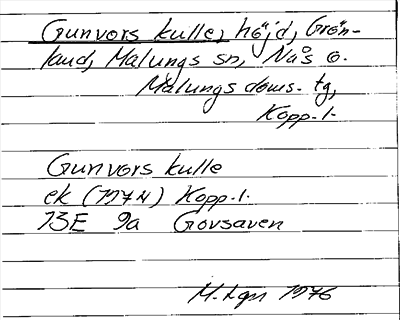 Gunvors kulle, höjd, Grön-
land, Malungs sn, Nås o.
Malungs doms. tg,
Kopp. l.
Gunvors kulle
ek (117N) Kopp. l.
13E 9a Govsaven
1976